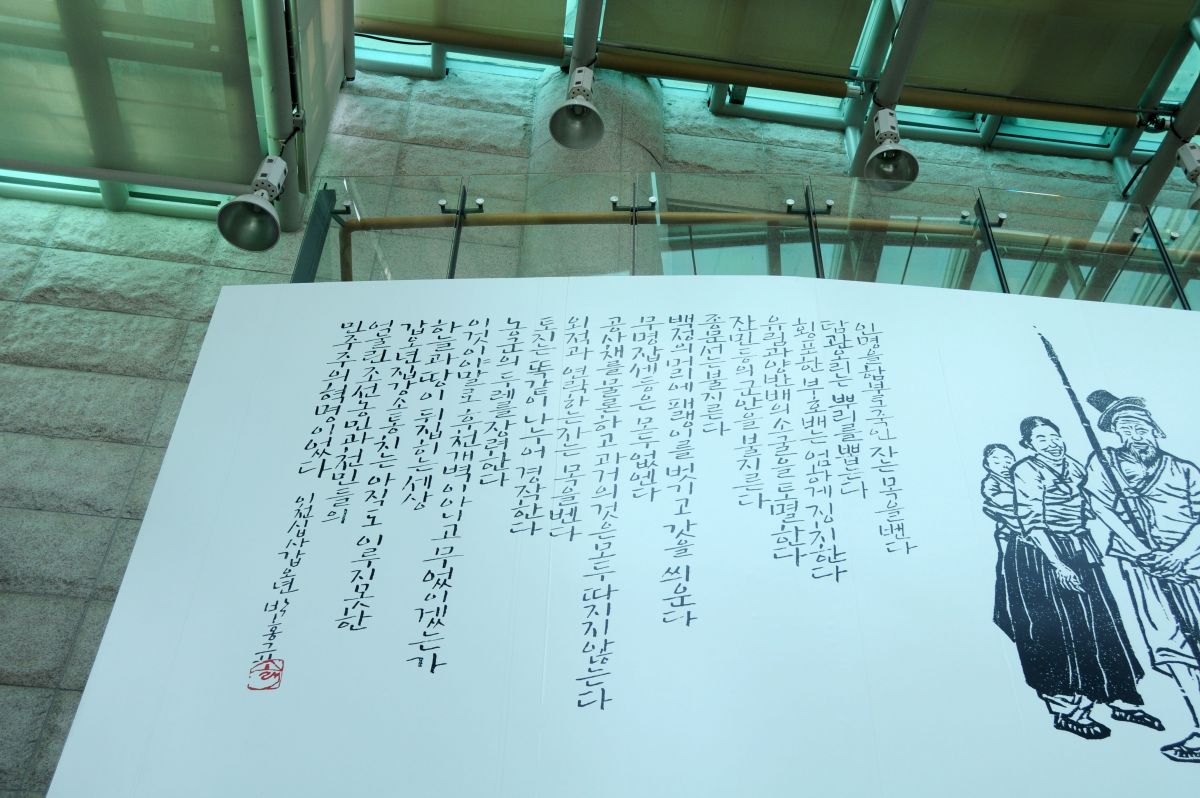 인명을함부로죽인 자는 목을 벤다
탐관오리는 뿌리를 뽑는다
횡포한 부호배는 엄하게 징치한다
유림과양반배의 소굴을 토멸한다
잔민등의군안을 불지른다
종문선불지른다
백정의머리에 패랭이를 벗기고 갓을 씌운다
무명잡세등은 모두없앤다
공사채를물론하고 과거의것은 모두 따지지않는다
외적과 연락하는자는 목을벤다
토지는 똑같이 나누어 경작한다
농군의 두레를장려한다
이것이야말로 후천개벽이아니고 무엇이겠는가
하늘과 땅이 뒤집힌세상
갑오년집강소통치는 아직도 이루지못한
조선농민과천민들의
민주주의혁명이었다
이천십사갑오년 박홍규